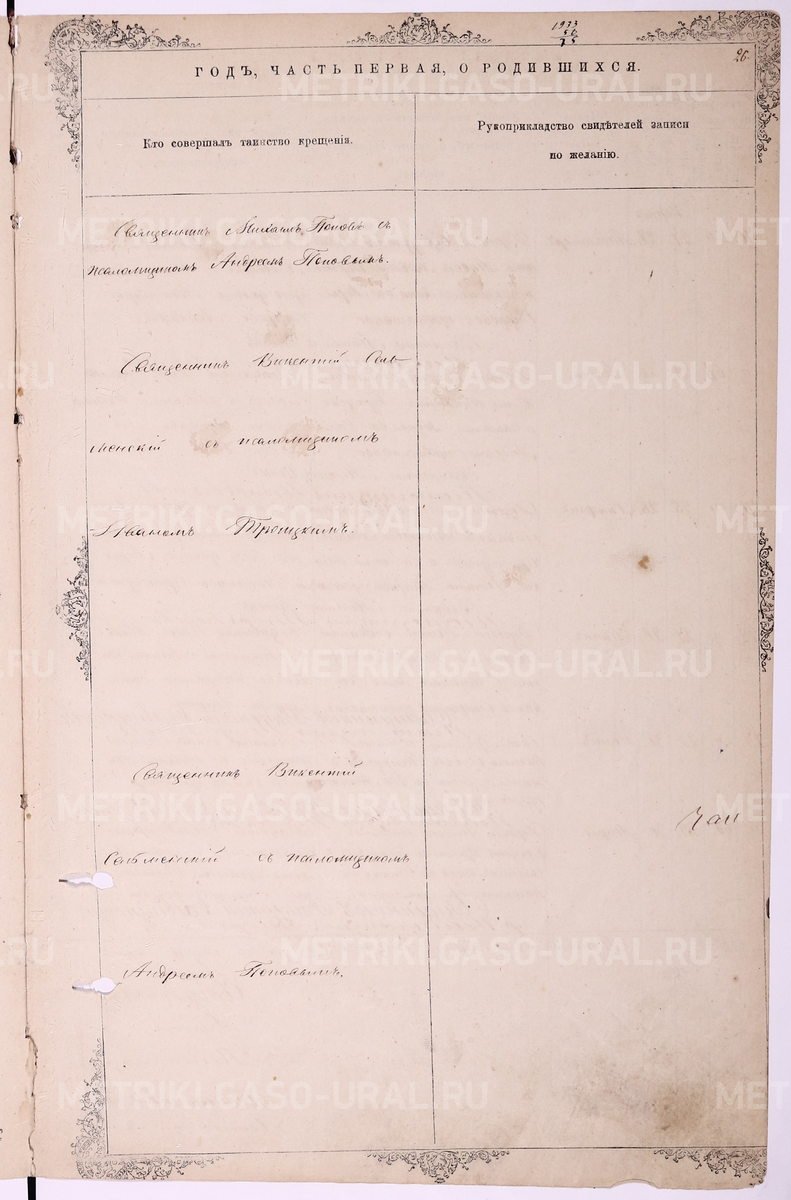 1923
50
25
26
ГОДЪ, ЧАСТЬ ПЕРВАЯ, О РОДИВШИХСЯ.
Кто совершалъ таинство крещенія.
Рукоприкладство свидѣтелей записи
по желанію.
Священникъ Михаилъ Поповъ съ
псаломщикомъ Андреемъ Поповымъ.
Священникъ Викентій Сель-
менскій съ псаломщикомъ
Иваномъ Троицкимъ.
Священникъ Викентій
Сельменскій съ псаломщикомъ
Андреемъ Поповымъ.
METRIKI.GASO-URAL.RU